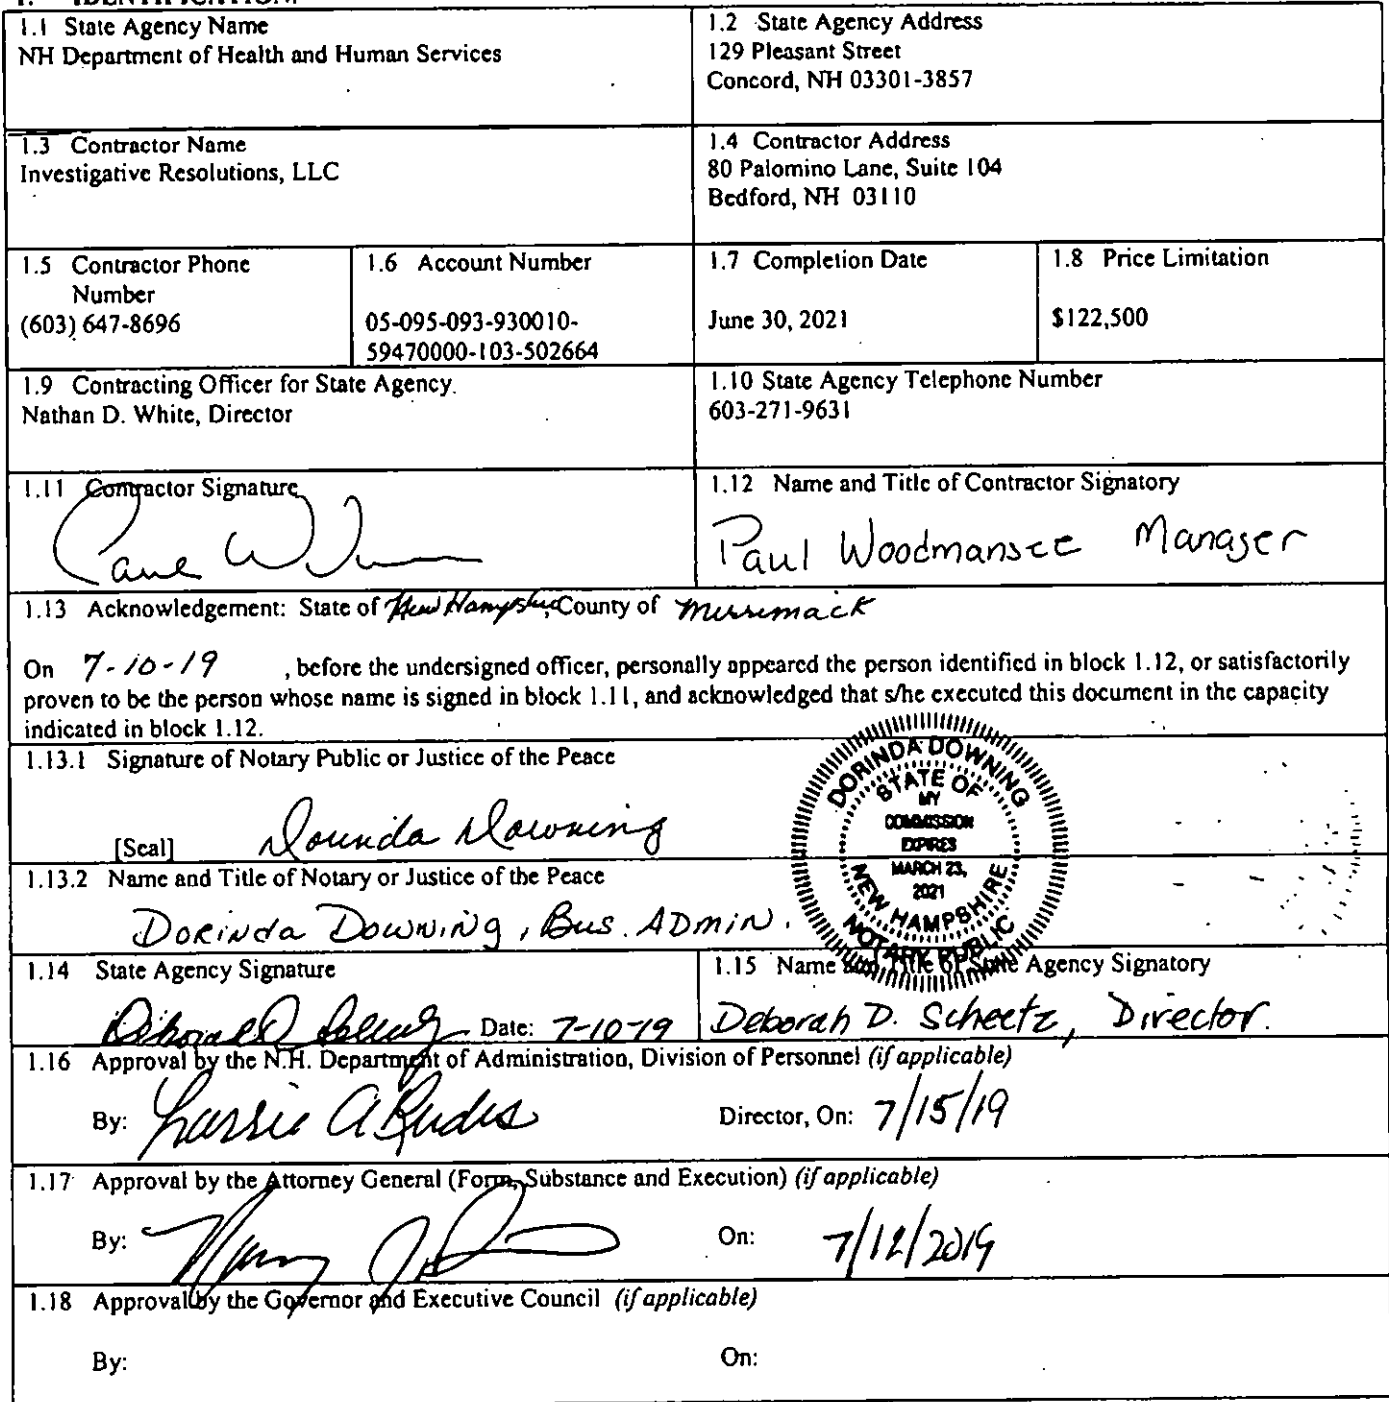 1. IDENTIFICATION.
1.1 State Agency Name
NH Department of Health and Human Services
1.2 State Agency Address
129 Pleasant Street
Concord, NH 03301-3857
1.3 Contractor Name
Investigative Resolutions, LLC
1.4 Contractor Address
80 Palomino Lane, Suite 104
Bedford, NH 03110
1.5 Contractor Phone
Number
(603) 647-8696
1.6 Account Number
05-095-093-930010-
59470000-103-502664
1.7 Completion Date
June 30, 2021
1.8 Price Limitation
$122,500
1.9 Contracting Officer for State Agency.
Nathan D. White, Director
1.10 State Agency Telephone Number
603-271-9631
1.11 Contractor Signature
Paul W
1.12 Name and Title of Contractor Signatory
Paul Woodmansee Manager
1.13 Acknowledgement: State of New Hampshire, County of Merrimack
On 7-10-19 , before the undersigned officer, personally appeared the person identified in block 1.12, or satisfactorily
proven to be the person whose name is signed in block 1.11, and acknowledged that s/he executed this document in the capacity
indicated in block 1.12.
1.13.1 Signature of Notary Public or Justice of the Peace
[Seal] Dorinda Downing
DORINDA DOWNING
STATE OF
MY
COMMISSION
EXPIRES
MARCH 23,
2021
NEW HAMPSHIRE
NOTARY PUBLIC
1.13.2 Name and Title of Notary or Justice of the Peace
Dorinda Downing, Bus. Admin.
1.14 State Agency Signature
Deborah D Date: 7-10-19
1.15 Name and Title of State Agency Signatory
Deborah D. Scheetz, Director.
1.16 Approval by the N.H. Department of Administration, Division of Personnel (if applicable)
By: A Rudis Director, On: 7/15/19
1.17 Approval by the Attorney General (Form, Substance and Execution) (if applicable)
By: On: 7/12/2019
1.18 Approval by the Governor and Executive Council (if applicable)
By: On: